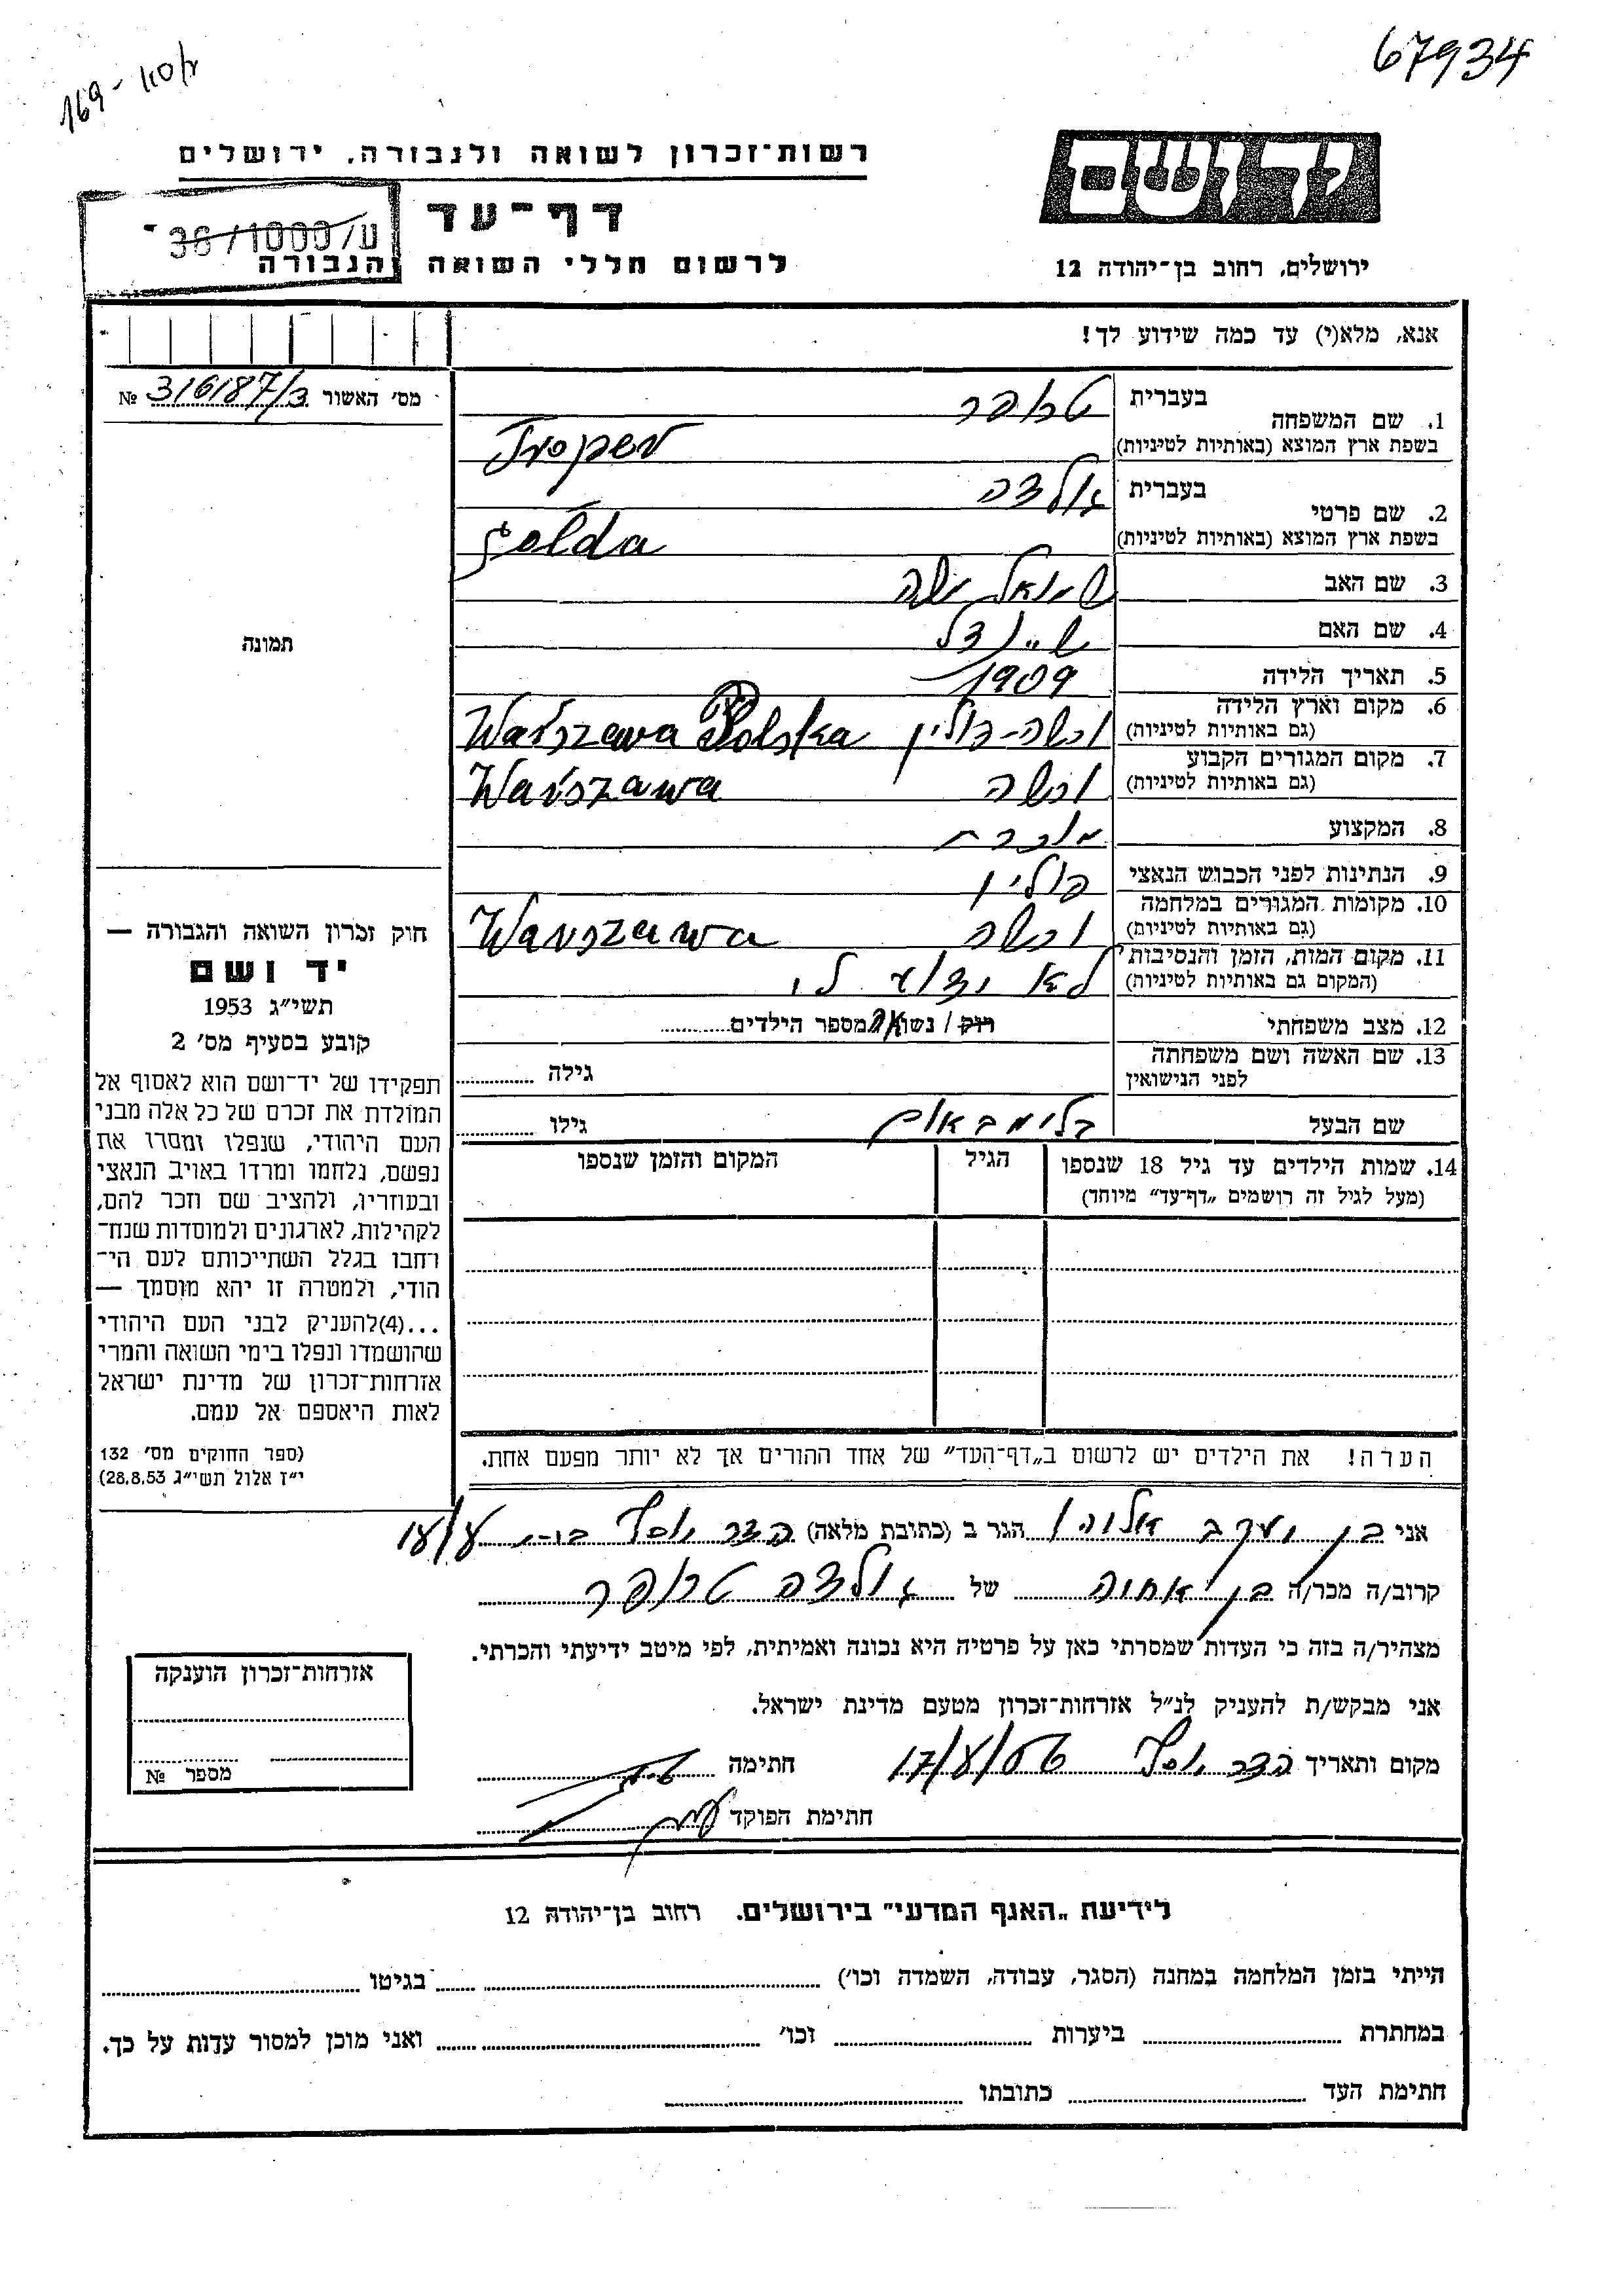 67934
169 -
יד ושם
רשות־זכרון לשואה ולגבורה, ירושלים
דף־עד
36/1000/ע
לרשום חללי השואה והגבורה
ירושלים, רחוב בן־יהודה 12
אנא, מלא(י) עד כמה שידוע לך!
מס׳ האשור 316187/3 №
1. שם המשפחה בעברית טרופר
בשפת ארץ המוצא (באותיות לטיניות) Troper
2. שם פרטי בעברית גולדה
בשפת ארץ המוצא (באותיות לטיניות) Golda
3. שם האב שמואל משה
4. שם האם שיינדל
5. תאריך הלידה 1909
6. מקום וארץ הלידה (גם באותיות לטיניות) ורשה-פולין Warszawa Polska
7. מקום המגורים הקבוע (גם באותיות לטיניות) ורשה Warszawa
8. המקצוע מוכרת
9. הנתינות לפני הכבוש הנאצי פולין
10. מקומות המגורים במלחמה (גם באותיות לטיניות) ורשה Warszawa
11. מקום המות, הזמן והנסיבות (המקום גם באותיות לטיניות) לא ידוע לי
12. מצב משפחתי רוק / נשוי/אה מספר הילדים
13. שם האשה ושם משפחתה לפני הנישואין גילה
שם הבעל בלימבאום גילו
14. שמות הילדים עד גיל 18 שנספו הגיל המקום והזמן שנספו
(מעל לגיל זה רושמים „דף־עד״ מיוחד)
הערה! את הילדים יש לרשום ב„דף־העד״ של אחד ההורים אך לא יותר מפעם אחת.
תמונה
חוק זכרון השואה והגבורה —
יד ושם
תשי״ג 1953
קובע בסעיף מס׳ 2
תפקידו של יד־ושם הוא לאסוף אל
המולדת את זכרם של כל אלה מבני
העם היהודי, שנפלו ומסרו את
נפשם, נלחמו ומרדו באויב הנאצי
ובעוזריו, ולהציב שם וזכר להם,
לקהילות, לארגונים ולמוסדות שנח־
רחבו בגלל השתייכותם לעם הי־
הודי, ולמטרה זו יהא מוסמך —
...(4)להעניק לבני העם היהודי
שהושמדו ונפלו בימי השואה והמרי
אזרחות־זכרון של מדינת ישראל
לאות היאספם אל עמם.
(ספר החוקים מס׳ 132
י״ז אלול תשי״ג 28.8.53)
אני בן יעקב הגר ב (כתובת מלאה) הדר יוסף
קרוב/ה מכר/ה בן אחותה של גולדה טרופר
מצהיר/ה בזה כי העדות שמסרתי כאן על פרטיה היא נכונה ואמיתית, לפי מיטב ידיעתי והכרתי.
אני מבקש/ת להעניק לנ״ל אזרחות־זכרון מטעם מדינת ישראל.
מקום ותאריך הדר יוסף חתימה
חתימת הפוקד
אזרחות־זכרון הוענקה
מספר №
לידיעת „האגף המדעי״ בירושלים. רחוב בן־יהודה 12
הייתי בזמן המלחמה במחנה (הסגר, עבודה, השמדה וכו׳) בגיטו
במחתרת ביערות וכו׳ ואני מוכן למסור עדות על כך.
חתימת העד כתובתו